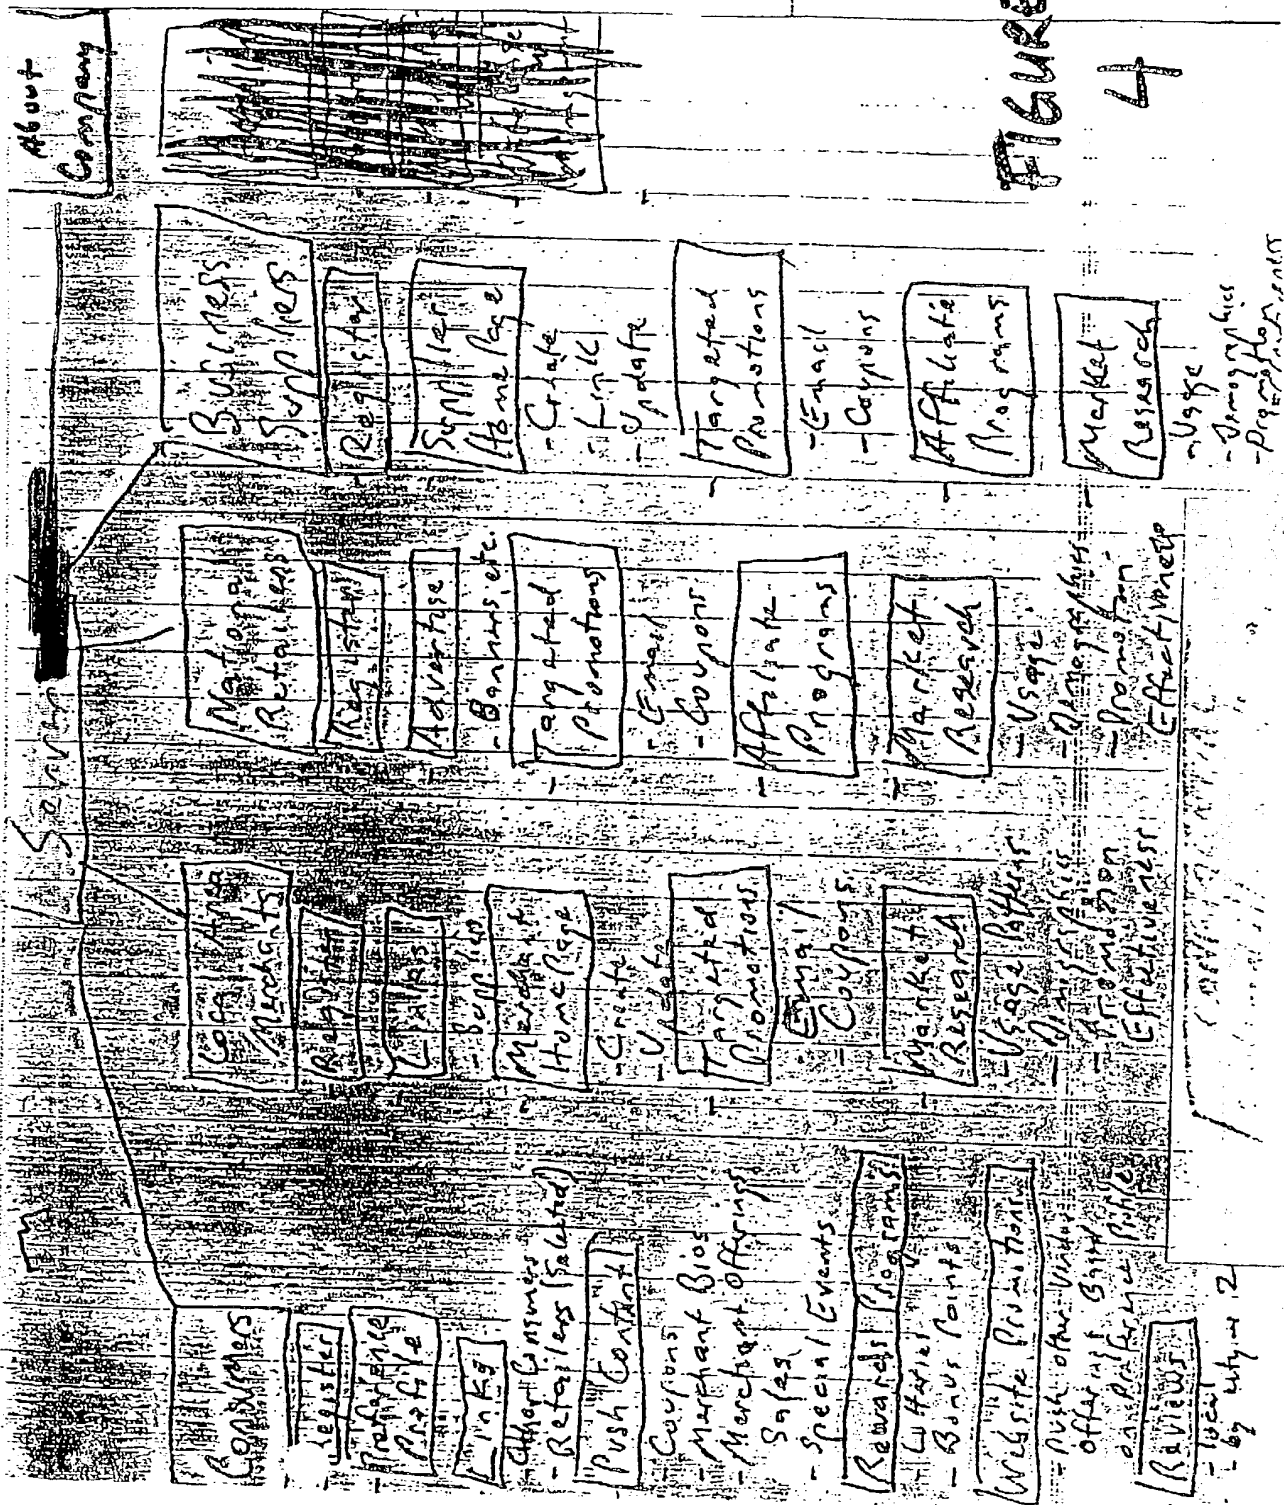 About
Company
Server
Consumers
Register
Preference
Profile
Links
- Other Consumers
- Retailers (Selected)
Push Content
- Coupons
- Merchant Bios
- Merchant Offerings
Sales
- Special Events
Rewards Programs
- Lotteries
- Bonus Points
Website Promotions
- Push other vendor
offerings Based
on Preference Profile
Reviews
- local
- by
Local Area
Merchants
Register
Links
- Suppliers
Merchant
Home Page
- Create
- Update
Targeted
Promotions
- Email
- Coupons
Market
Research
- Usage Patterns
- Demographics
- Promotion
Effectiveness
National
Retailers
Register
Advertise
- Banners, etc.
Targeted
Promotions
- Email
- Coupons
Affiliate
Programs
Market
Research
- Usage
- Demographics
- Promotion
Effectiveness
Business
Suppliers
Register
Supplier
Home Page
- Create
- Link
- Update
Targeted
Promotions
- Email
- Coupons
Affiliate
Programs
Market
Research
- Usage
- Demographics
- Promotion
FIGURE
4